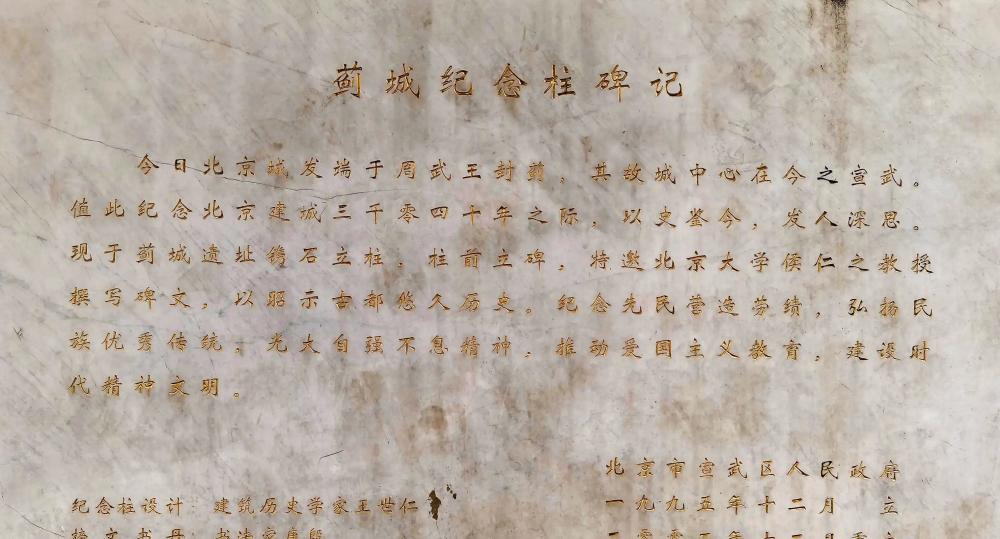 蓟城纪念柱碑记
今日北京城发端于周武王封蓟，其故城中心在今之宣武。
值此纪念北京建城三千零四十年之际，以史鉴今，发人深思。
现于蓟城遗址镌石立柱，柱前立碑，特邀北京大学侯仁之教授
撰写碑文，以昭示古都悠久历史。纪念先民营造劳绩，弘扬民
族优秀传统，光大自强不息精神，推动爱国主义教育，建设时
代精神文明。
北京市宣武区人民政府
纪念柱设计：建筑历史学家王世仁
一九九五年十二月 立